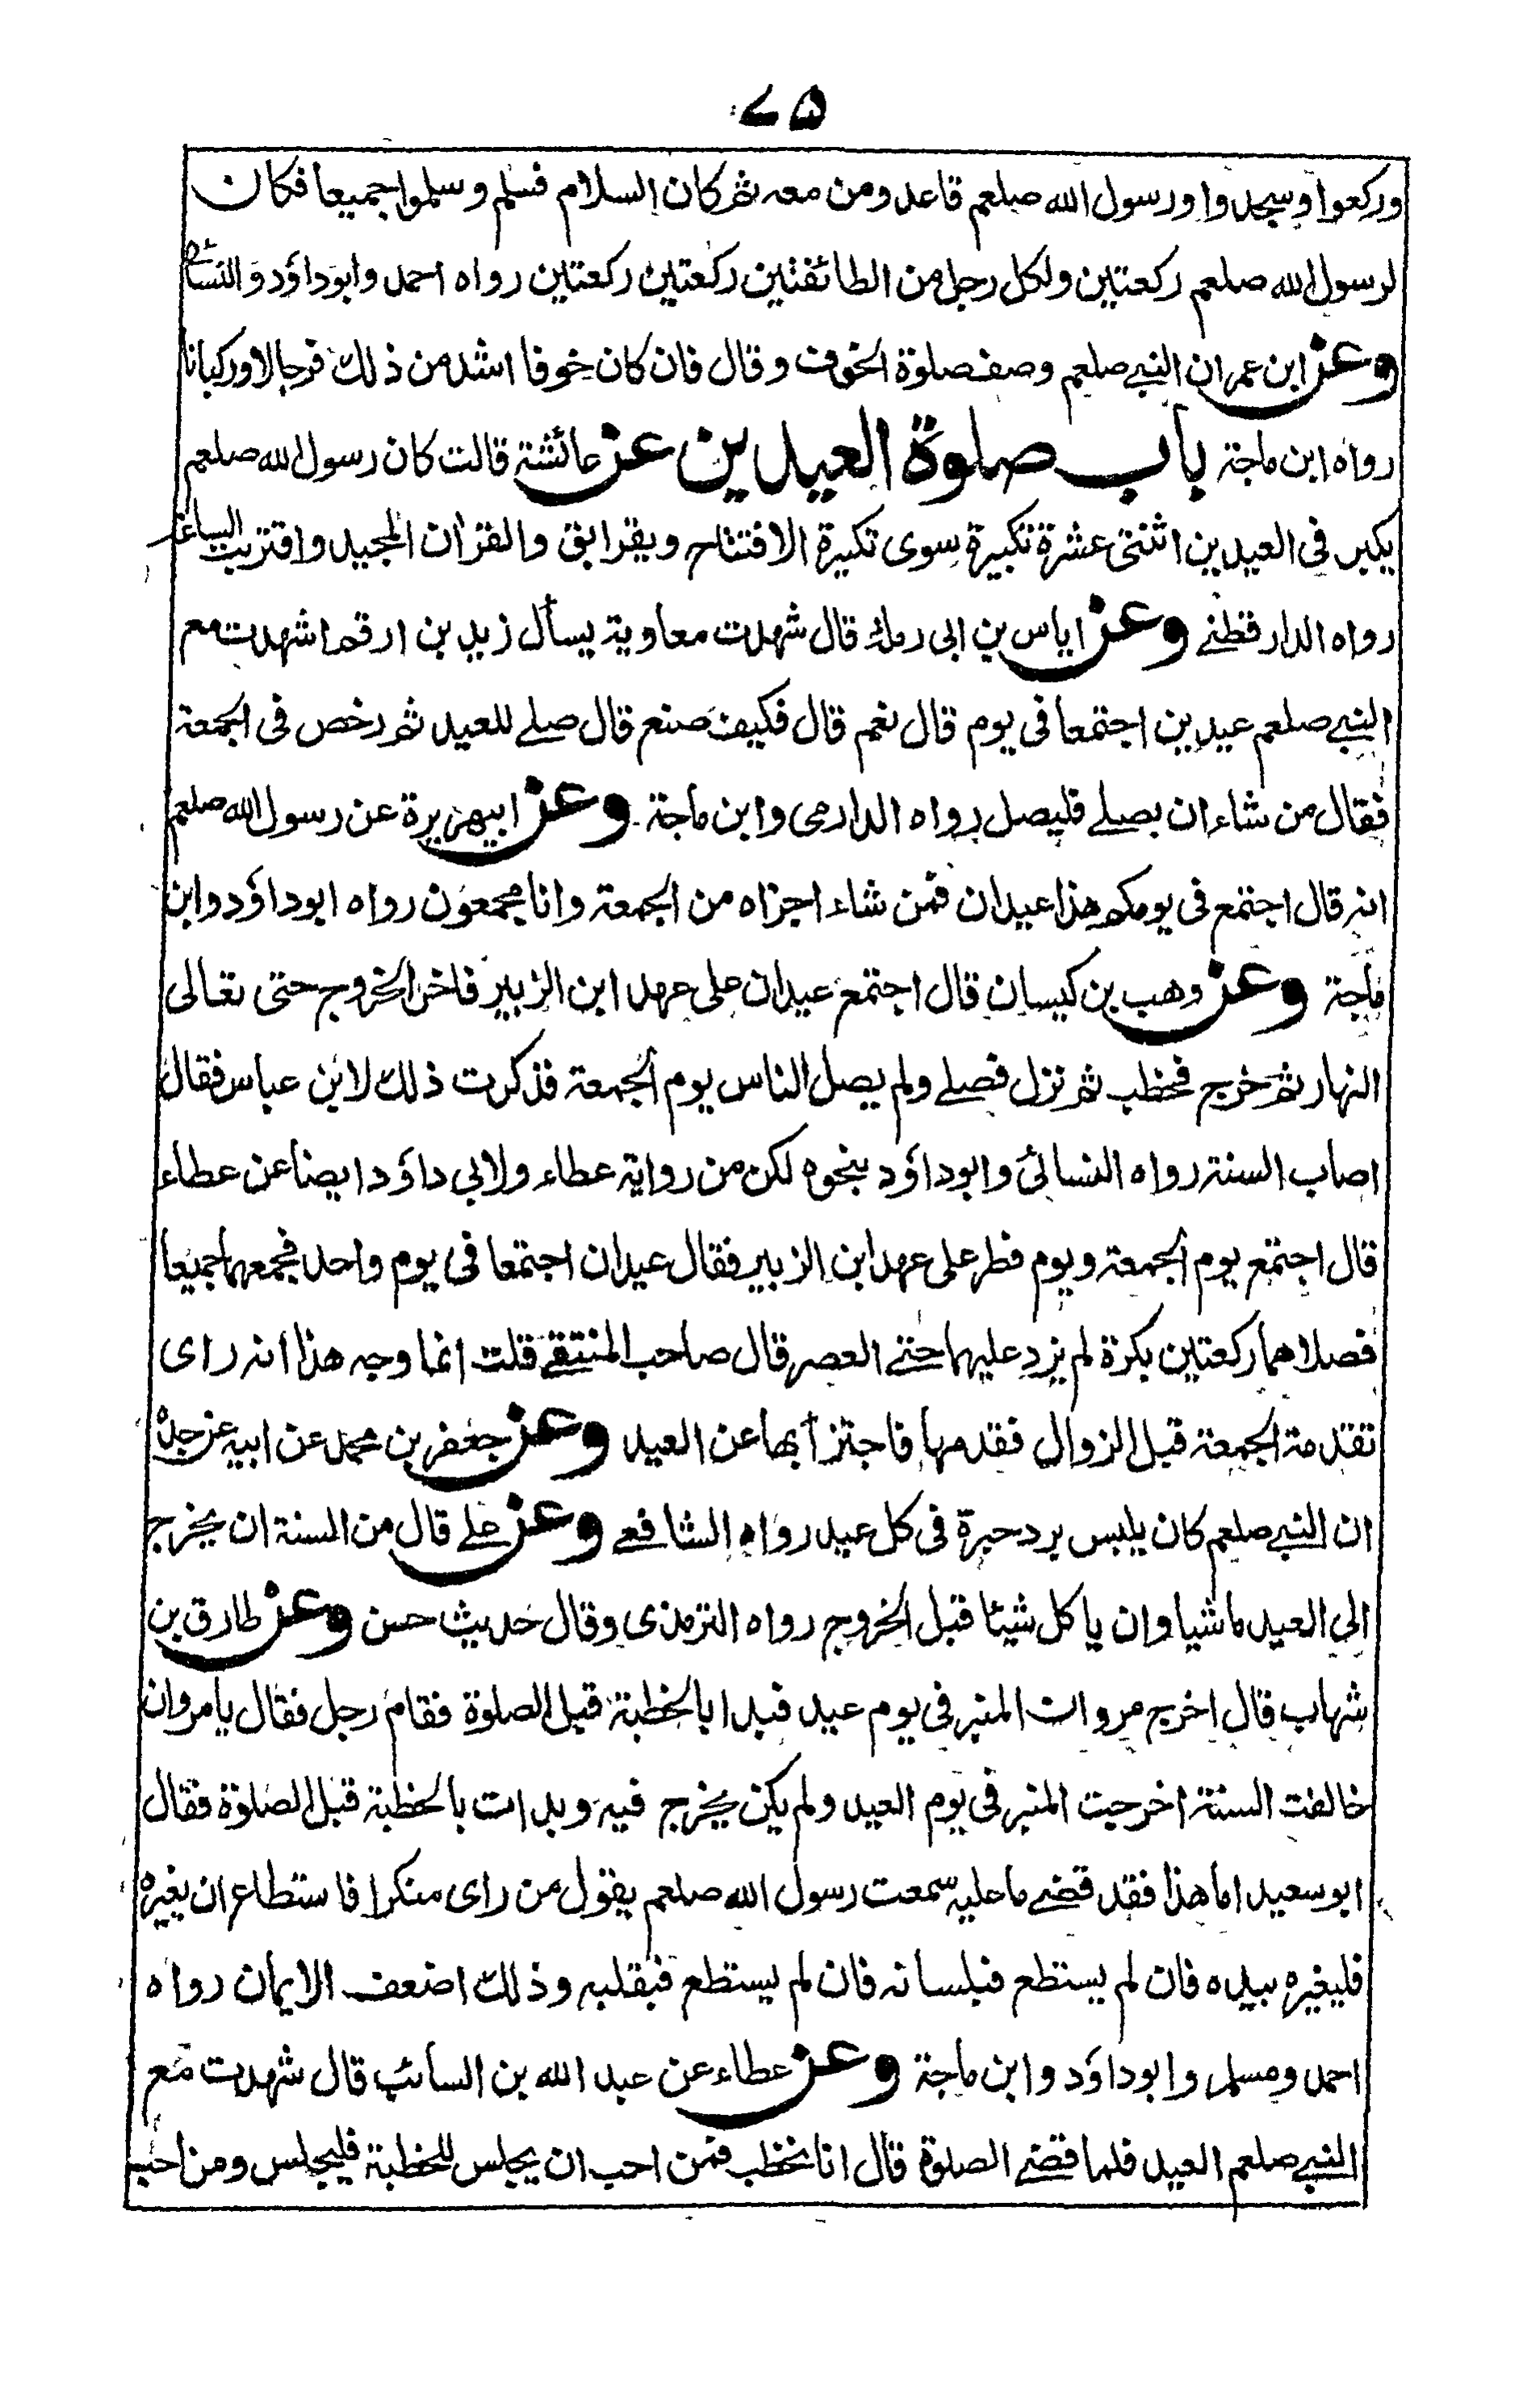 ۷۵
وركعوا وسجدوا ورسول الله صلعم قاعد ومن معه ثم كان السلام فسلم وسلموا جميعا فكان
لرسول الله صلعم ركعتين ولكل رجل من الطائفتين ركعتين ركعتين رواه احمد وابوداؤد والنسائى
وعن ابن عمر ان النبى صلعم وصف صلوة الخوف وقال فان كان خوفا اشد من ذلك فرجالا وركبانا
رواه ابن ماجة باب صلوة العيدين عن عائشة قالت كان رسول الله صلعم
يكبر فى العيدين اثنتى عشرة تكبيرة سوى تكبيرة الافتتاح ويقرا بق والقران المجيد واقتربت الساعة
رواه الدارقطنى وعن اياس بن ابى رملة قال شهدت معاوية يسأل زيد بن ارقم اشهدت مع
النبى صلعم عيدين اجتمعا فى يوم قال نعم قال فكيف صنع قال صلى للعيد ثم رخص فى الجمعة
فقال من شاء ان يصلى فليصل رواه الدارمى وابن ماجة وعن ابيهريرة عن رسول الله صلعم
انه قال اجتمع فى يومكم هذا عيدان فمن شاء اجزاه من الجمعة وانا مجمعون رواه ابوداؤد وابن
ماجة وعن وهب بن كيسان قال اجتمع عيدان على عهد ابن الزبير فاخر الخروج حتى تعالى
النهار ثم خرج فخطب ثم نزل فصلى ولم يصل الناس يوم الجمعة فذكرت ذلك لابن عباس فقال
اصاب السنة رواه النسائى وابوداؤد بنحوه لكن من رواية عطاء ولابى داؤد ايضا عن عطاء
قال اجتمع يوم الجمعة ويوم فطر على عهد ابن الزبير فقال عيدان اجتمعا فى يوم واحد فجمعهما جميعا
فصلاهما ركعتين بكرة لم يزد عليهما حتى العصر قال صاحب المنتقى قلت انما وجه هذا انه راى
تقدمة الجمعة قبل الزوال فقدمها فاجتزأ بها عن العيد وعن جعفر بن محمد عن ابيه عن جده
ان النبى صلعم كان يلبس برد حبرة فى كل عيد رواه الشافعى وعن على قال من السنة ان يخرج
الى العيد ماشيا وان ياكل شيئا قبل الخروج رواه الترمذى وقال حديث حسن وعن طارق بن
شهاب قال اخرج مروان المنبر فى يوم عيد فبدا بالخطبة قبل الصلوة فقام رجل فقال يا مروان
خالفت السنة اخرجت المنبر فى يوم العيد ولم يكن يخرج فيه وبدات بالخطبة قبل الصلوة فقال
ابو سعيد اما هذا فقد قضى ما عليه سمعت رسول الله صلعم يقول من راى منكرا فاستطاع ان يغيره
فليغيره بيده فان لم يستطع فبلسانه فان لم يستطع فبقلبه وذلك اضعف الايمان رواه
احمد ومسلم وابوداؤد وابن ماجة وعن عطاء عن عبد الله بن السائب قال شهدت مع
النبى صلعم العيد فلما قضى الصلوة قال انا نخطب فمن احب ان يجلس للخطبة فليجلس ومن احب